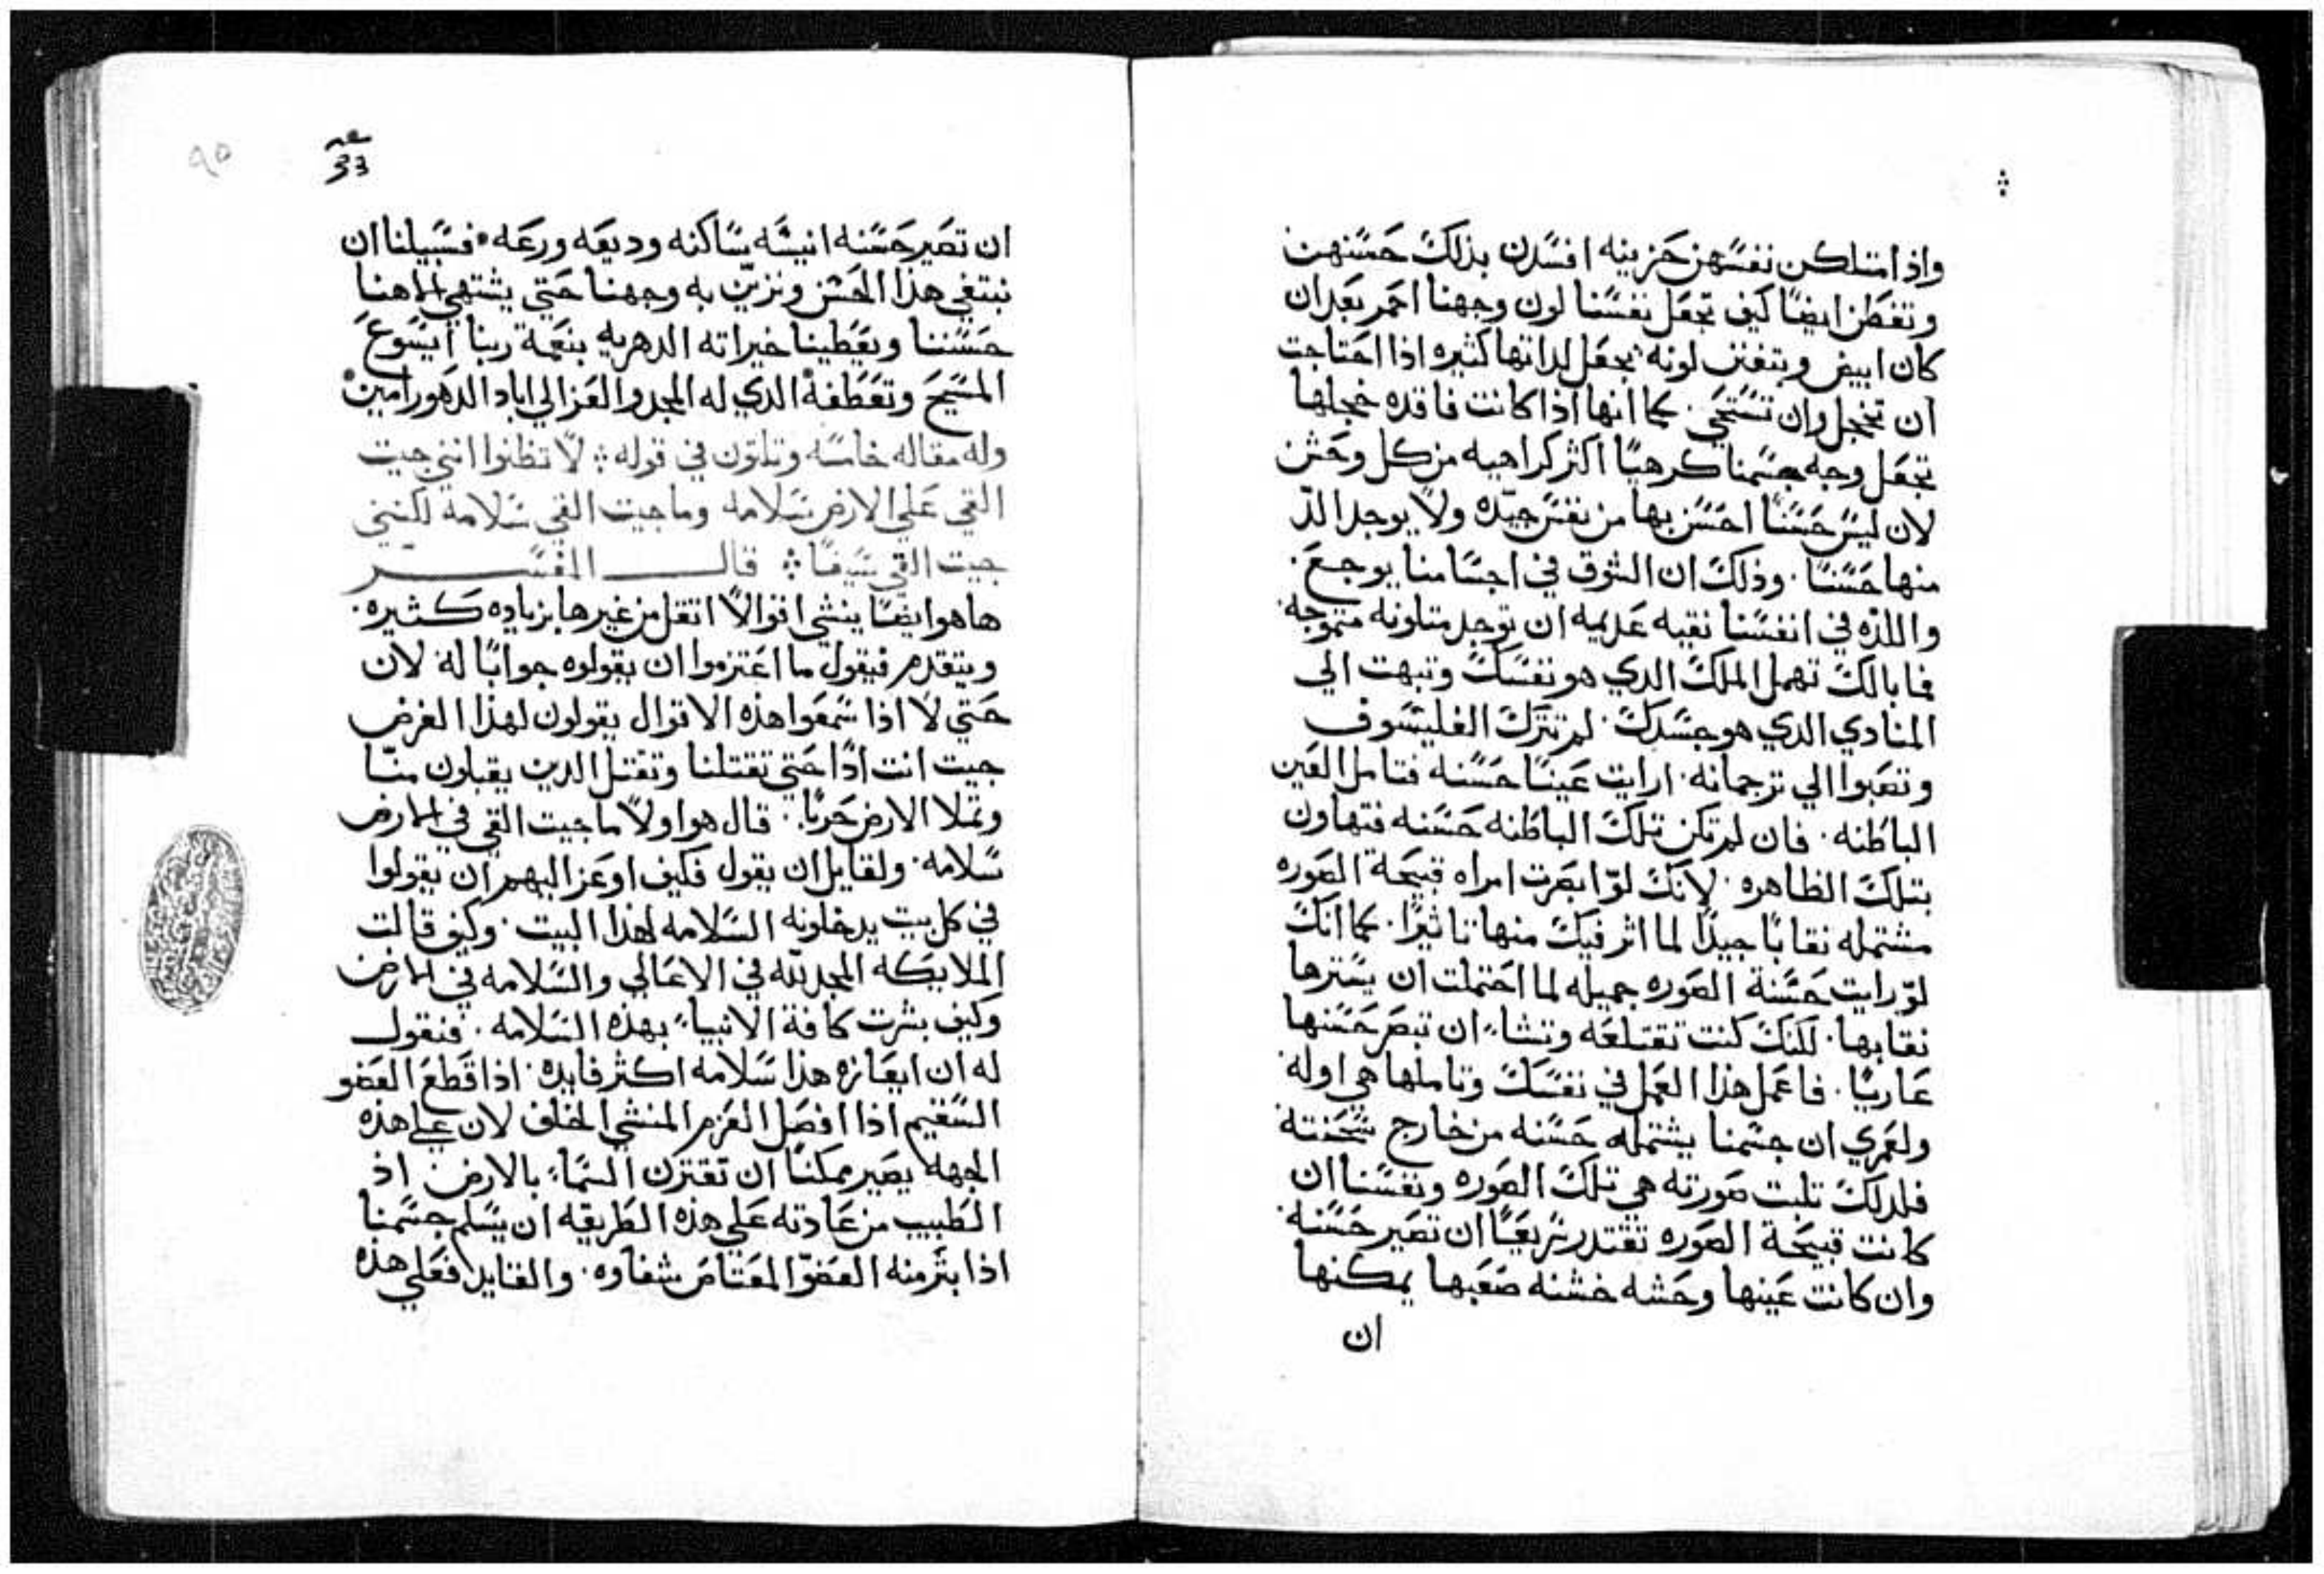 واذا امتلكن نفسهن حزينه افسدن بذلك حسنهن
وتفطن ايضا كيف تجعل نفسنا لون وجهنا احمر بعد ان
كان ابيض ويتفنن لونه يجعل لداتها كثيره اذا احتاجت
ان تخجل وان تستحي. كما انها اذا كانت فاقده خجلها
تجعل وجه جسمنا كرهيا اكثر كراهيه من كل وحش
لان ليس حسنا احسن بها من نفس جيده ولا يوجد الد
منها حسنا. وذلك ان الشوق في اجسامنا يوجع.
واللذه في انفسنا نقيه عديمه ان توجد متلونه متموجه
فما بالك تهمل الملك الدي هو نفسك وتبهت الي
المنادي الدي هو جسدك. لم تترك الفليسوف
وتصبوا الي ترجمانه. ارايت عينا حسنه فتامل العين
الباطنه. فان لم تكن تلك الباطنه حسنه فتهاون
بتلك الظاهره. لانك لو ابصرت امراه قبيحة الصوره
مشتمله نقابا جيدا لما اثر فيك منها تاثيرا. كما انك
لو رايت حسنة الصوره جميله لما احتملت ان يسترها
نقابها. لكنك كنت تقتلعه وتشاء ان تبصر حسنها
عاريا. فاعمل هذا العمل في نفسك وتاملها هي اوله
ولعمري ان جسمنا يشتمله حسنه من خارج سحنته
فلدلك تلبت صورته هي تلك الصوره ونفسنا ان
كانت قبيحة الصوره تقتدر سريعا ان تصير حسنه
وان كانت عينها وحشه خشنه صعبها يمكنها
ان
٩٥
33
ان تصير حسنه انيسه ساكنه وديعه ورعه فسبيلنا ان
نبتغي هذا الحسن ونزين به وجهنا حتي يشتهي الاهنا
حسننا ويعطينا خيراته الدهريه بنعمة ربنا ايسوع
المسيح وتعطفه الدي له المجد والعز الي اباد الدهور امين
وله مقاله خامسه وتلتون في قوله لا تظنوا انني جيت
القي علي الارض سلامه وما جيت القي سلامة لكنني
جيت القي سيفا قال المفسر
ها هو ايضا ينشي اقوالا اتقل من غيرها بزياده كثيره.
ويتقدم فيقول ما اعتزموا ان يقولوه جوابا له لان
حتي لا اذا سمعوا هذه الاقوال يقولون لهذا الغرض
جيت انت اذا حتي تقتلنا وتقتل الدين يقبلون منا
وتملا الارض حربا. قال هو اولا ما جيت القي في الارض
سلامه. ولقايل ان يقول فكيف اوعز اليهم ان يقولوا
في كل بيت يدخلونه السلامه لهذا البيت. وكيف قالت
الملايكه المجد لله في الاعالي والسلامه في الارض
وكيف بشرت كافة الانبياء بهذه السلامه. فنقول
له ان ايعازه هذا سلامه اكثر فايده. اذا قطع العضو
السقيم اذا افصل العزم المنشي الخلف لان علي هذه
الجهه يصير ممكنا ان تقترن السماء بالارض اذ
الطبيب من عادته علي هذه الطريقه ان يسلم جسمنا
اذا بتر منه العضو المعتاص شفاوه. والقايد فعلي هذه